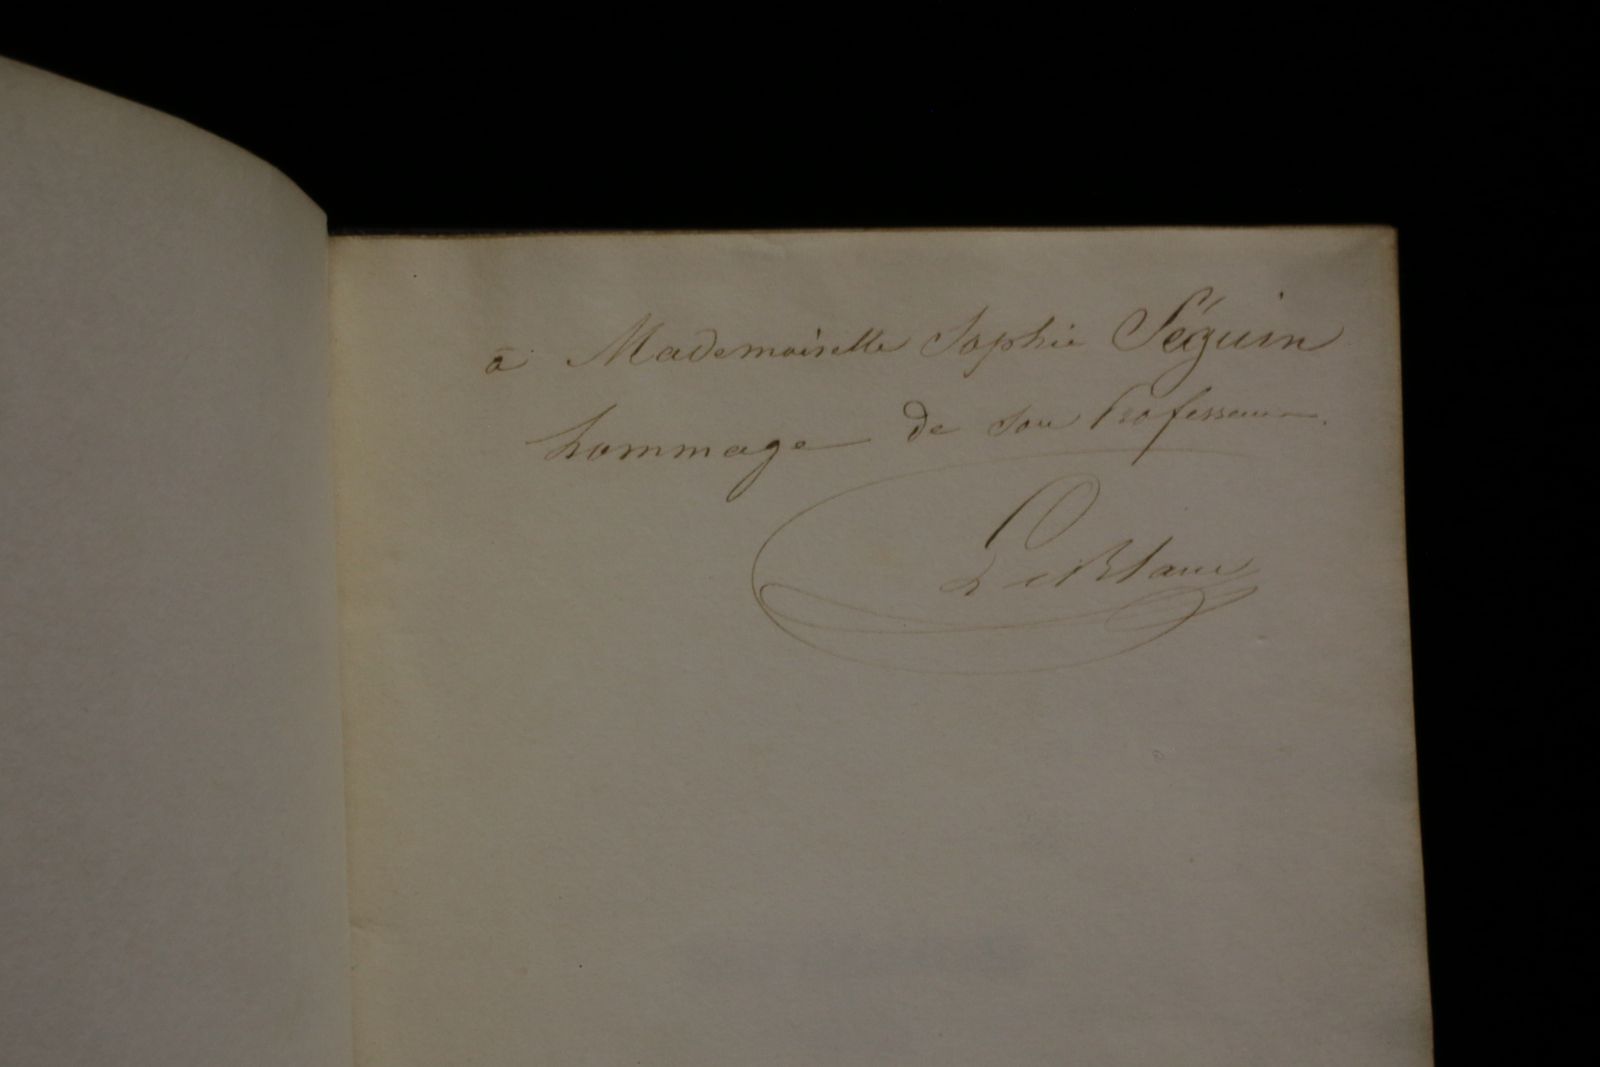 à Mademoiselle Sophie Séguin
hommage de son Professeur.
LeBlanc